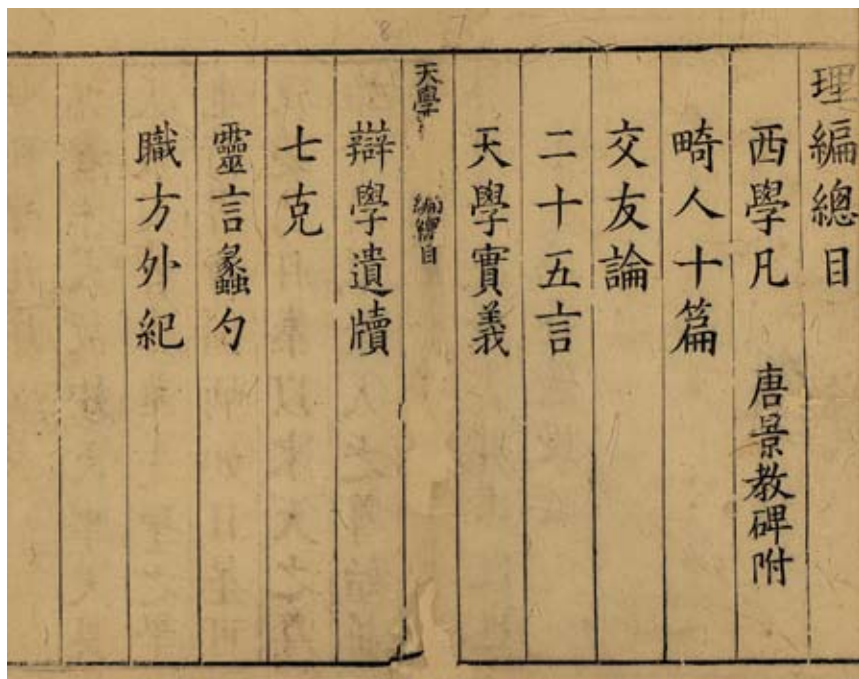 理編總目
西學凡 唐景教碑附
畸人十篇
交友論
二十五言
天學實義
天學 編總目
辯學遺牘
七克
靈言蠡勺
職方外紀